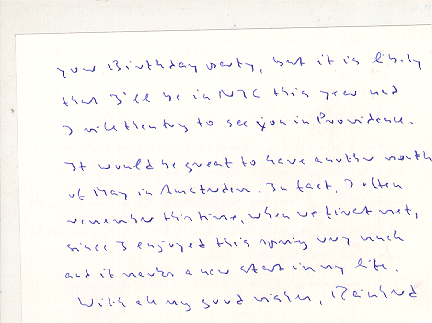 your Birthday party, but it is likely
that I'll be in NYC this year and
I will then try to see you in Providence.
It would be great to have another month
of May in Amsterdam. In fact, I often
remember this time, when we first met,
since I enjoyed this spring very much
and it marks a new start in my life.
With all my good wishes,